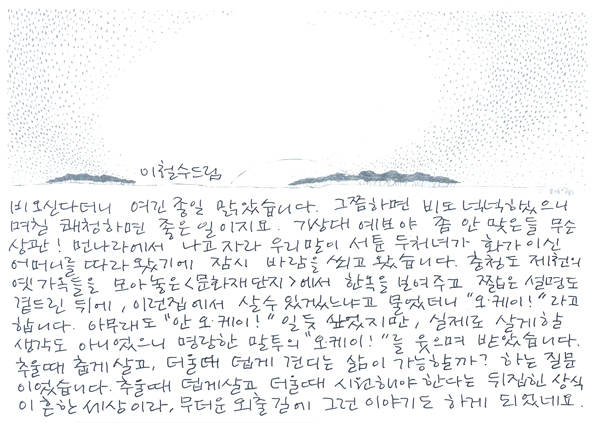 이철수드림
비오신다더니 여긴 종일 맑았습니다. 그쯤하면 비도 넉넉하였으니
며칠 쾌청하면 좋은 일이지요. 기상대 예보야 좀 안 맞은들 무슨
상관! 먼나라에서 나고 자라 우리말이 서툰 두처녀가 화가이신
어머니를 따라왔기에 잠시 바람을 쐬고 왔습니다. 충청도 제천의
옛가옥들을 모아놓은 <문화재단지>에서 한옥을 보여주고 짧은 설명도
곁드린 뒤에, 이런집에서 살수있겠느냐고 물었더니 "오·케이!" 라고
합니다. 아무래도 "안 오·케이!" 일듯 싶었지만, 실제로 살게할
생각도 아니었으니 명랑한 말투의 "오·케이!"를 웃으며 받았습니다.
추울때 춥게살고, 더울때 덥게 견디는 삶이 가능할까? 하는 질문
이었습니다. 추울때 덥게살고 더울때 시원해야 한다는 뒤집힌 상식
이 흔한 세상이라, 무더운 외출길에 그런 이야기도 하게 되었네요.